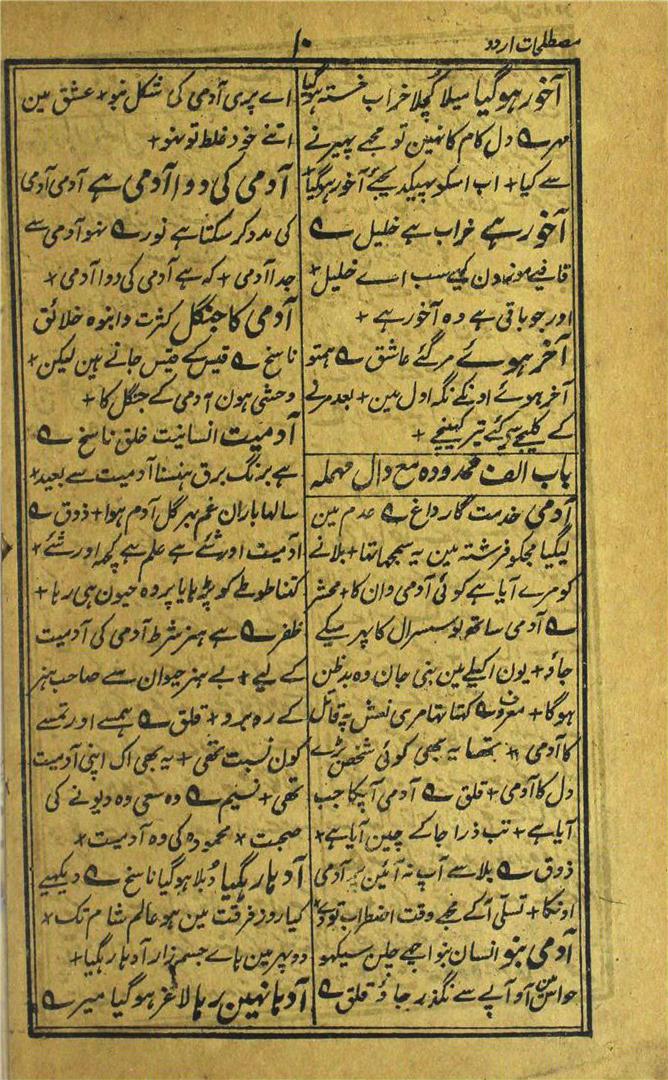 مصطلحات اردو
۱۰
آخور ہوگیا میلا کچلا خراب خستہ ہوگیا
مہر ؎ دل کام کا نہین تو مجھے پھیرنے
سے کیا + اب اسکو پھینکدیجئے آخور ہوگیا +
آخور ہے خراب ہے خلیل ؎
قافیے موزون کہے سب اے خلیل +
اور جو باقی ہے وہ آخور ہے +
آخر ہوئے مر گئے عاشق ؎ ہمتو
آخر ہوئے اونکے نگہ اول مین + بعد مرنے
کے کلیجے سے گئے تیر کھینچے +
باب الف ممدودہ مع دال مہملہ
آدمی خدمت گار داغ ؎ عدم مین
لیگیا مجکو فرشتہ مین یہ سمجھا تھا + بلانے
کو مرے آیا ہے کوئی آدمی وان کا + محشر
؎ آدمی ساتھ لو سسرال کا پھر میکے
جاؤ + یون اکیلے مین بنی جان وہ بدظن
ہوگا + معروف ؎ کہتا تھا مری نعش پہ قاتل
کا آدمی + تھا یہ بھی کوئی شخص بڑے
دل کا آدمی + قلق ؎ آدمی آپکا جب
آیا ہے + تب ذرا جاکے چین آیا ہے +
ذوق ؎ بلا سے آپ نہ آئین پہ آدمی
اونکا + تسلی آکے مجھے وقت اضطراب تو دے
آدمی بنو انسان بنو اچھے چلن سیکھو
حواس مین آو آپے سے نگذر جاؤ قلق ؎
اے پری آدمی کی شکل بنو + عشق مین
اتنے خود غلط تو نہو +
آدمی کی دوا آدمی ہے آدمی آدمی
کی مدد کر سکتا ہے نور ؎ نہو آدمی سے
جدا آدمی + کہ ہے آدمی کی دوا آدمی +
آدمی کا جنگل کثرت و انبوہ خلائق
ناسخ ؎ قیس کے قیس جانے ہین لیکن +
وحشی ہون آدمی کے جنگل کا +
آدمیت انسانیت خلق ناسخ ؎
ہے برنگ برق ہنسنا آدمیت سے بعید +
سالہا باران غم بہر گل آدم ہوا + ذوق ؎
آدمیت اور شئے ہے علم ہے کچھ اور شئے +
کتنا طوطے کو پڑہایا پر وہ حیون ہی رہا +
ظفر ؎ ہے ہنر شرط آدمی کی آدمیت
کے لیے + بے ہنر حیوان سے صاحب ہنر
کے رہ برو + قلق ؎ ہمسے اور تمسے
کون نسبت تھی + یہ بھی اک اپنی آدمیت
تھی + نسیم ؎ وہ سعی وہ دیونے کی
صحبت + محمودہ کی وہ آدمیت +
آدہا رہگیا دُبلا ہوگیا ناسخ ؎ دیکھیے
کیا روز فرقت مین ہو عالم شام تک +
دوپہر مین ہاے جسم زار آدہا رہگیا +
آدہا نہین رہا لاغر ہوگیا میر ؎